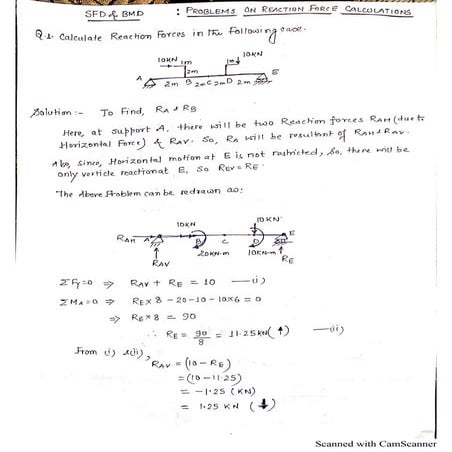 SFD & BMD : PROBLEMS ON REACTION FORCE CALCULATIONS
Q.1. Calculate Reaction Forces in the following case.
10KN 1m 1m 10KN
2m
A E
2m B 2m C 2m D 2m
Solution :- To Find, RA & RB
Here, at support A, there will be two Reaction forces RAH (due to
Horizontal Force) & RAV. So, RA will be resultant of RAH & RAV.
Also, since, Horizontal motion at E is not restricted, So, there will be
only verticle reaction at E, So REV = RE.
The Above Problem can be redrawn as:
10KN 10KN
RAH A B C D E
20KN-m 10KN-m
RAV RE
ΣFy=0 ⇒ RAV + RE = 10 —(i)
ΣMA=0 ⇒ RE×8 - 20 - 10 - 10×6 = 0
⇒ RE×8 = 90
∴ RE = 90/8 = 11.25 KN (↑) —(ii)
From (i) & (ii),
RAV = (10 - RE)
= (10 - 11.25)
= -1.25 (KN)
= 1.25 KN (↓)
Scanned with CamScanner